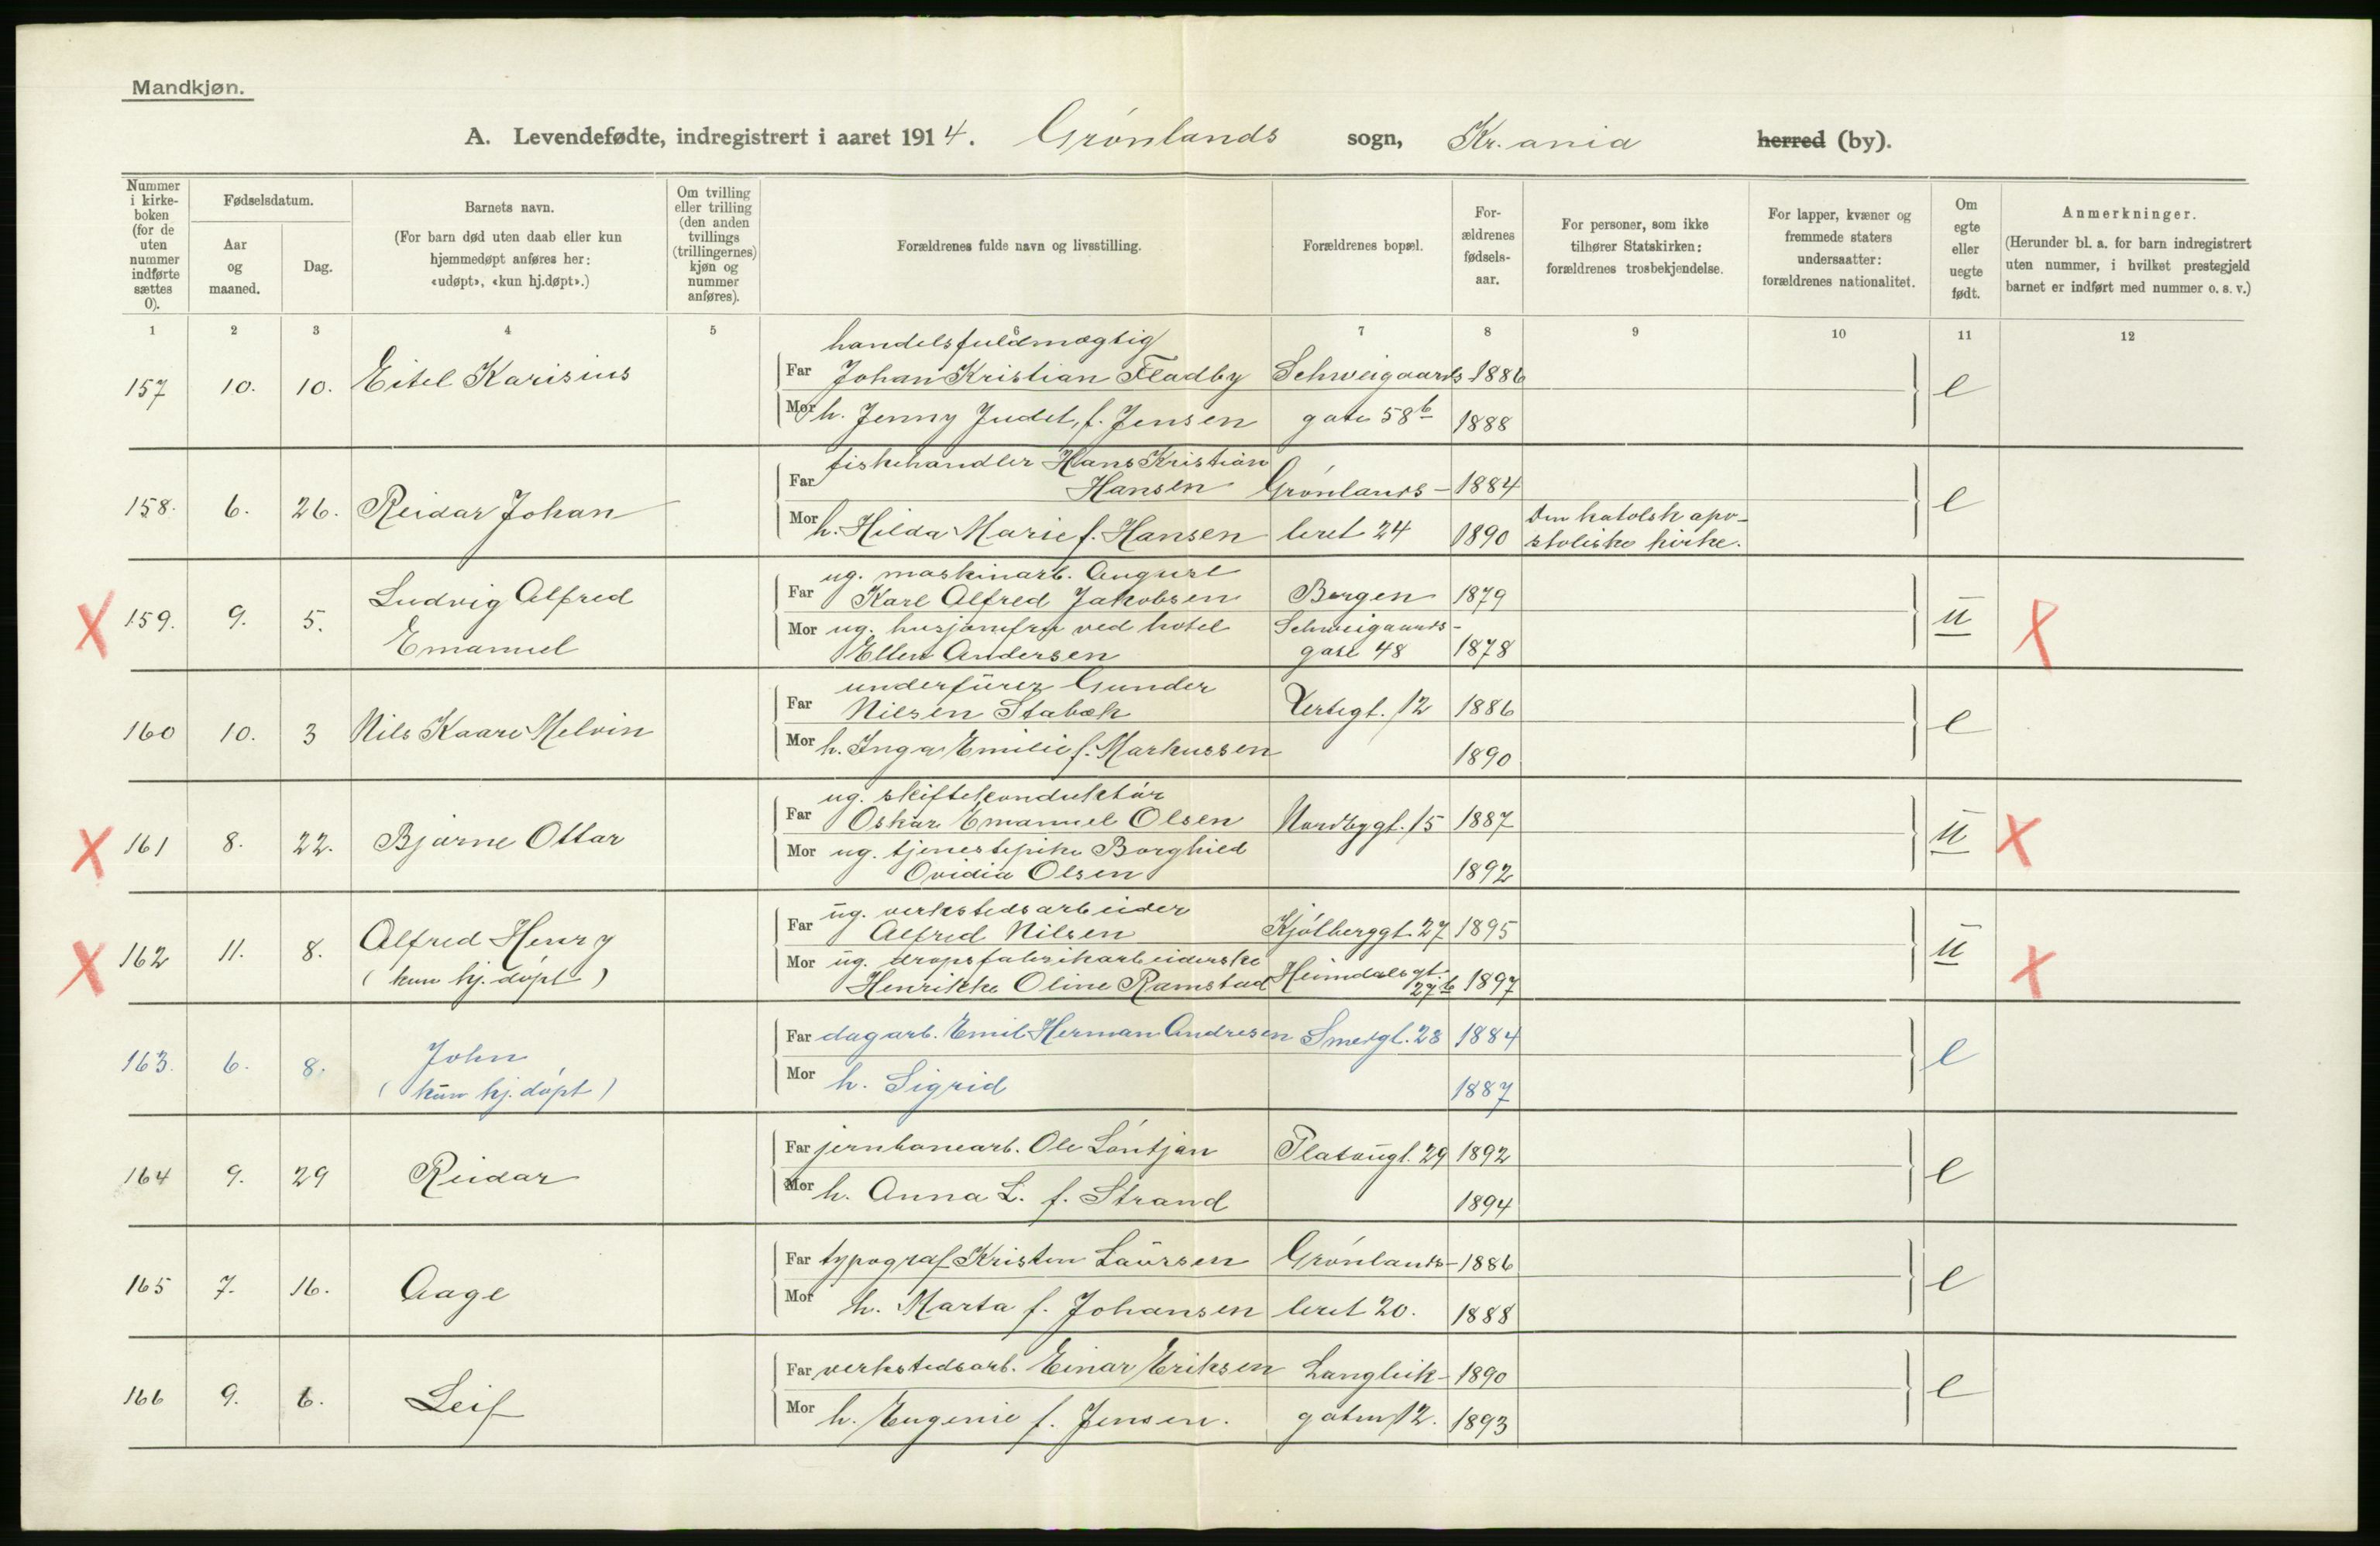 Mandkjøn.
A. Levendefødte, indregistrert i aaret 1914. Grønlands sogn, Kr.ania herred (by).
Nummer i kirkeboken (for de uten nummer indførte sættes 0).
Fødselsdatum.
Aar og maaned.
Dag.
Barnets navn.
(For barn død uten daab eller kun hjemmedøpt anføres her: «udøpt», «kun hj.døpt».)
Om tvilling eller trilling (den anden tvillings (trillingernes) kjøn og nummer anføres).
Forældrenes fulde navn og livsstilling.
Forældrenes bopæl.
Forældrenes fødselsaar.
For personer, som ikke tilhører Statskirken: forældrenes trosbekjendelse.
For lapper, kvæner og fremmede staters undersaatter: forældrenes nationalitet.
Om egte eller uegte født.
Anmerkninger.
(Herunder bl. a. for barn indregistrert uten nummer, i hvilket prestegjeld barnet er indført med nummer o. s. v.)
1 2 3 4 5 6 7 8 9 10 11 12
handelsfuldmægtig
157 10. 10. Eitel Karisius Far Johan Kristian Fladby Schweigaards 1886 e
Mor h. Jenny Judit, f. Jensen gate 58b 1888
fiskehandler Hans Kristian
158. 6. 26. Reidar Johan Far Hansen Grønlands- 1884 e
Mor h. Hilda Marie f. Hansen leret 24 1890 Den katolsk apo-
stoliske kirke.
ug. maskinarb. August
X 159. 9. 5. Ludvig Alfred Far Karl Alfred Jakobsen Bergen 1879 u X
Emanuel Mor ug. husjomfru ved hotel Schweigaards-
Ellen Andersen gate 48 1878
underfürer Gunder
160 10. 3 Nils Kaare Melvin Far Nilsen Stabæk Verksgt. 12 1886 e
Mor h. Inga Emilie f. Markussen 1890
ug. skiftekonduktør
X 161 8. 22. Bjarne Ottar Far Oskar Emanuel Olsen Nordbygt. 15 1887 u X
Mor ug. tjenestepike Borghild
Ovidia Olsen 1892
ug. verkstedsarbeider
X 162 11. 8. Alfred Henry Far Alfred Nilsen Kjølberggt. 27 1895 u X
(kun hj. døpt) Mor ug. dropsfabrikarbeiderske
Henrikke Oline Ramstad Heimdalsgt. 27b 1897
163. 6. 8. John Far dagarb. Emil Herman Andresen Smedgt. 28 1884 e
(kun hj. døpt) Mor h. Sigrid 1887
164 9. 29 Reidar Far jernbanearb. Ole Løntjan Platougt. 29 1892 e
Mor h. Anna L. f. Strand 1894
165 7. 16. Aage Far typograf Kristen Laursen Grønlands- 1886 e
Mor h. Marta f. Johansen leret 20. 1888
166 9. 6. Leif Far verkstedsarb. Einar Eriksen Langleik- 1890 e
Mor h. Eugenie f. Jensen. gaten 12. 1893